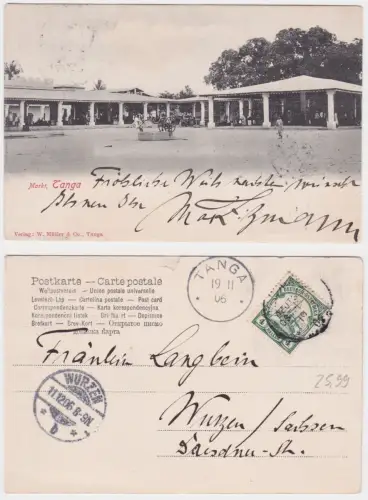 Markt, Tanga
Fröhliche Weihnachten wünscht
Ihnen Ihr
Max
Verlag: W. Müller & Co., Tanga.
Postkarte – Carte postale
Weltpostverein – Union postale universelle
Levelező-Lap – Cartolina postale – Post card
Correspondenzkarte – Karta korespondencyjna
Korespondenční lístek
Brefkort – Brev-Kort – Открытое письмо
TANGA
19 11
06
WURZEN
11.12.06 8-9N.
b
Fräulein Langbein
Wurzen/Sachsen
Dresdner-Str.
25,99